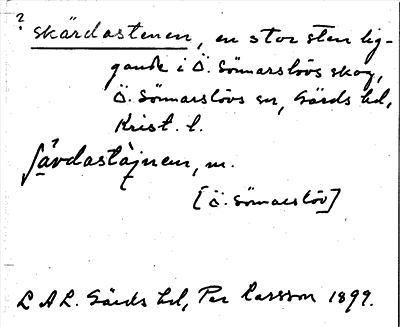 ? skärdastenen, en stor sten lig-
gande i Ö. Sönnarslövs skog,
Ö. Sönnarslövs sn, Gärds hd,
Krist. l.
ʃärdastàjnen, m.
[Ö. Sönnarslöv]
L A L. Gärds hd, Per Larsson 1899.